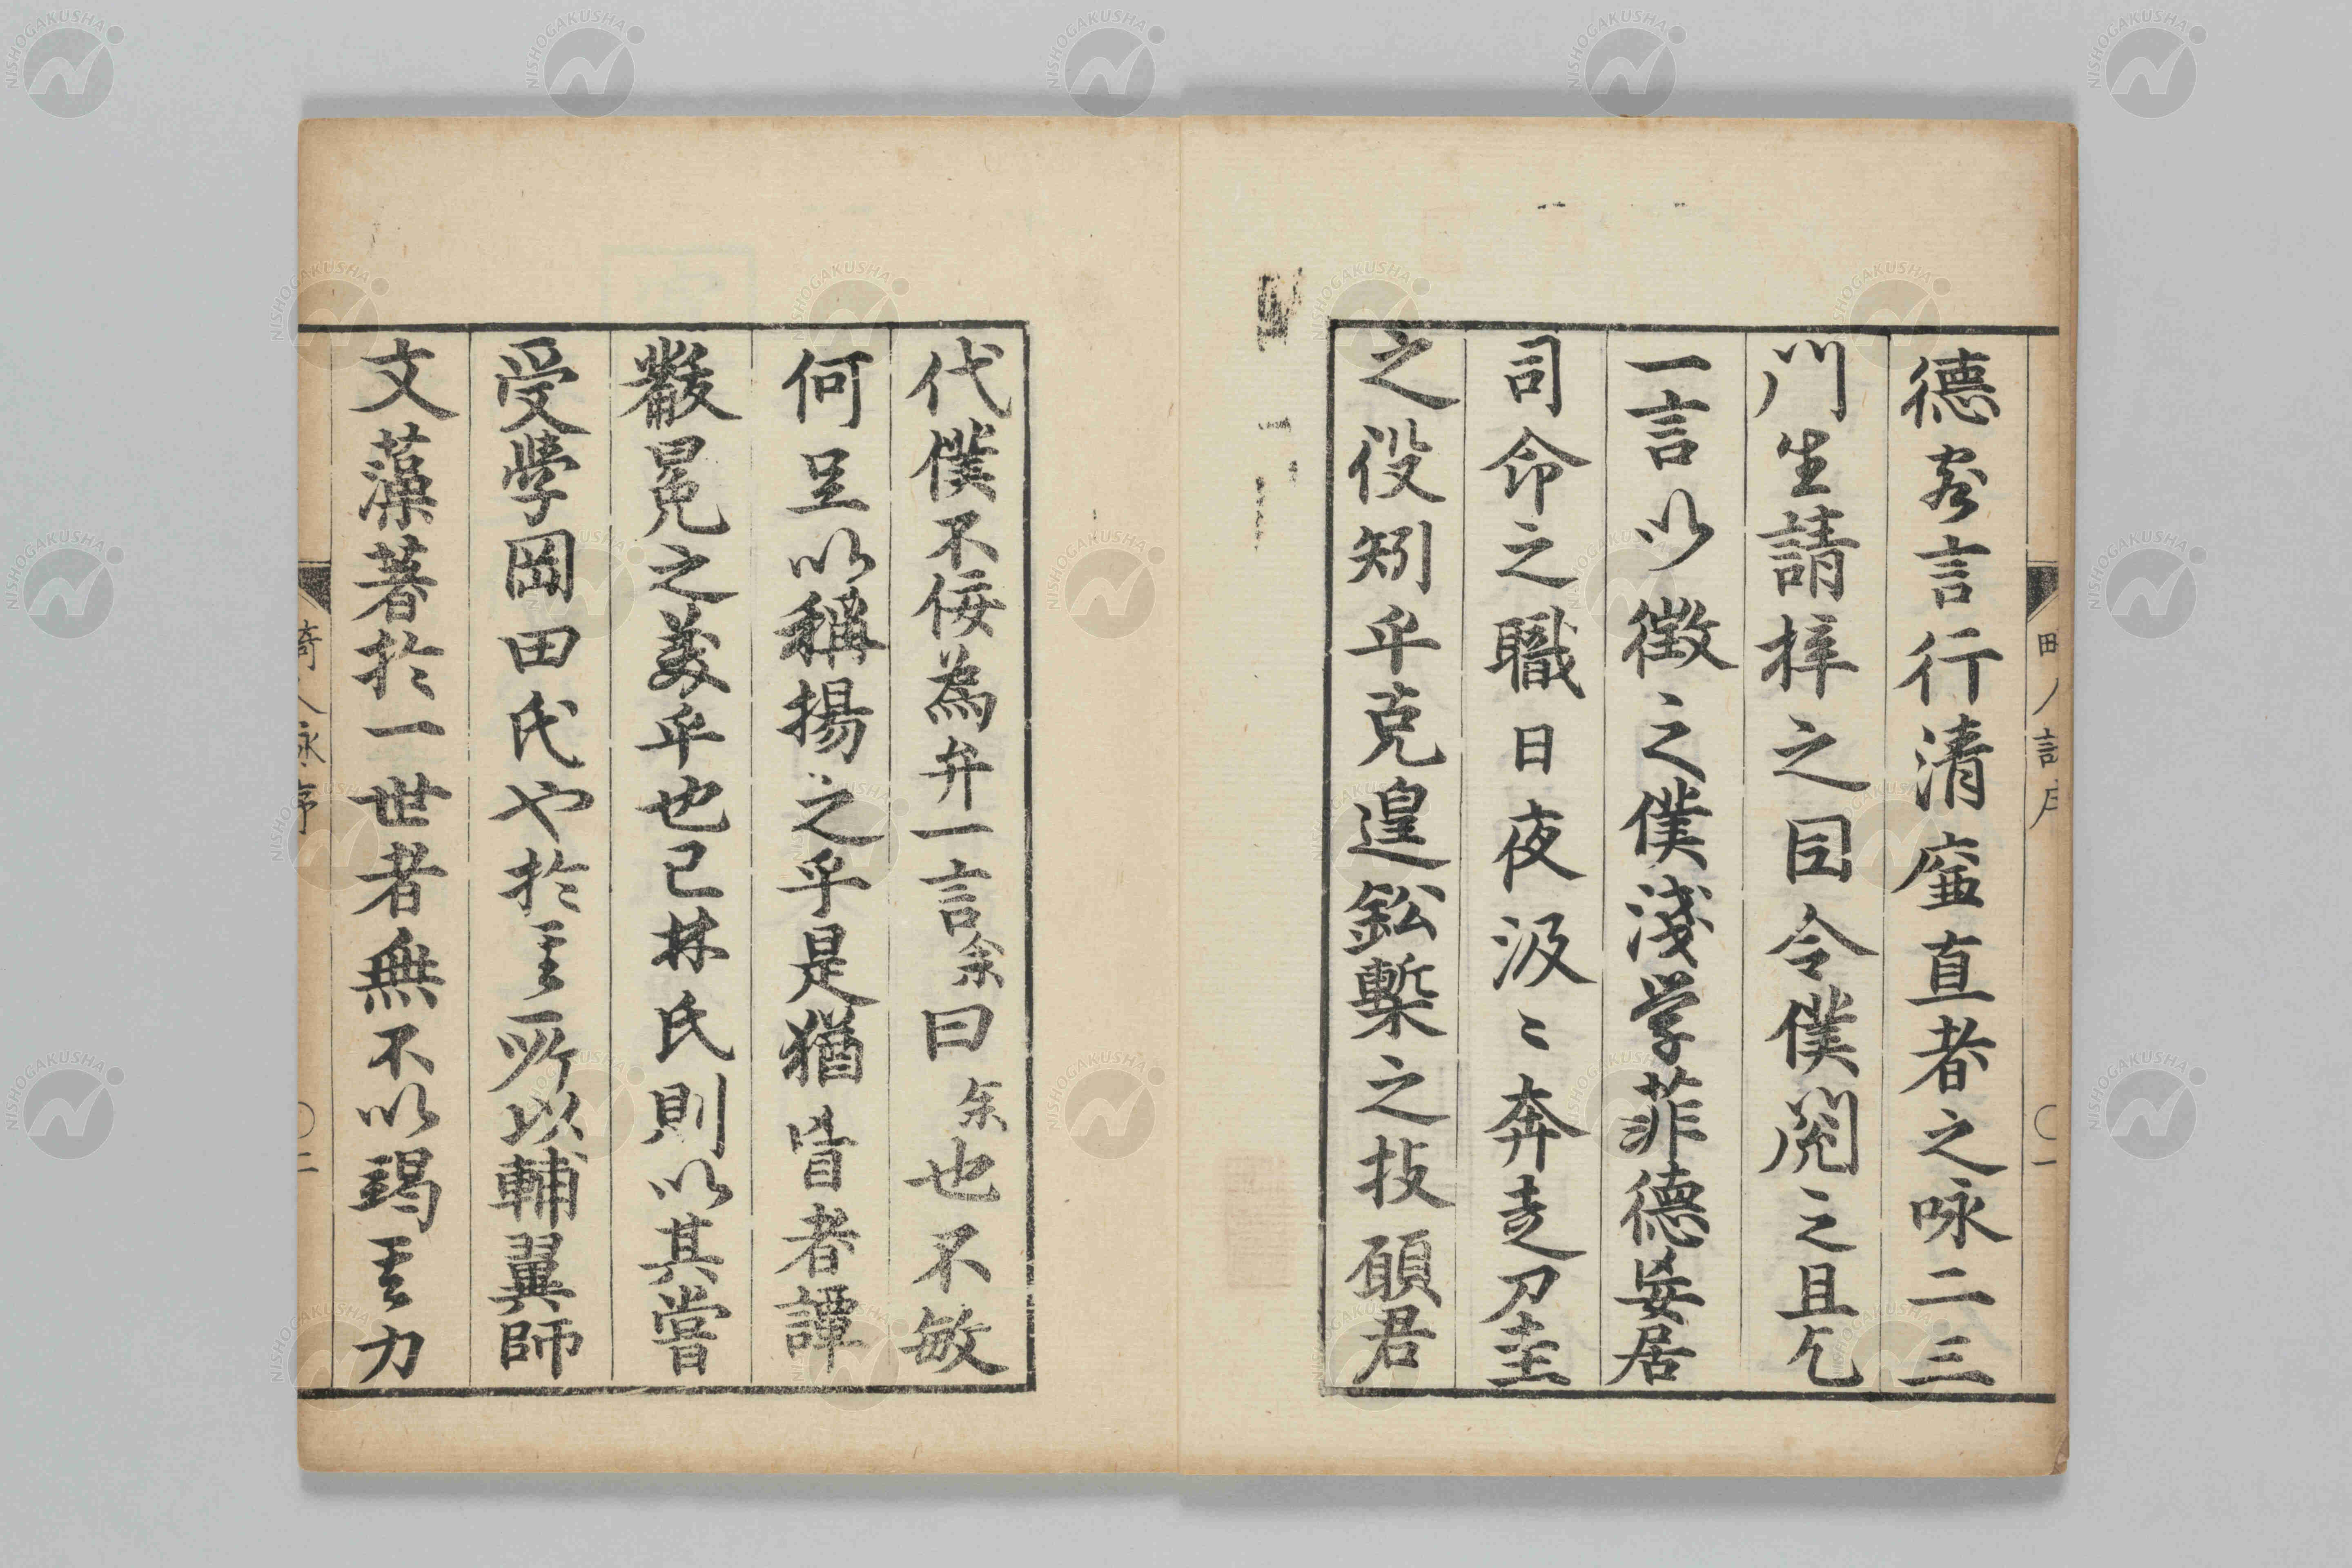 德容言行清廉直者之咏二三
門生請梓之因令僕閱之且乞
一言以徵之僕淺学菲德妄居
司命之職日夜汲〻奔走刀圭
之役矧乎克遑鉛槧之技願君
代僕不佞為弁一言余曰余也不敏
何足以稱揚之乎是猶眢者譚
黻冕之美乎也已林氏則以其嘗
受學岡田氏や於言所以輔翼師
文藻著於一世者無不以竭言力
〇一
〇二
NISHOGAKUSHA